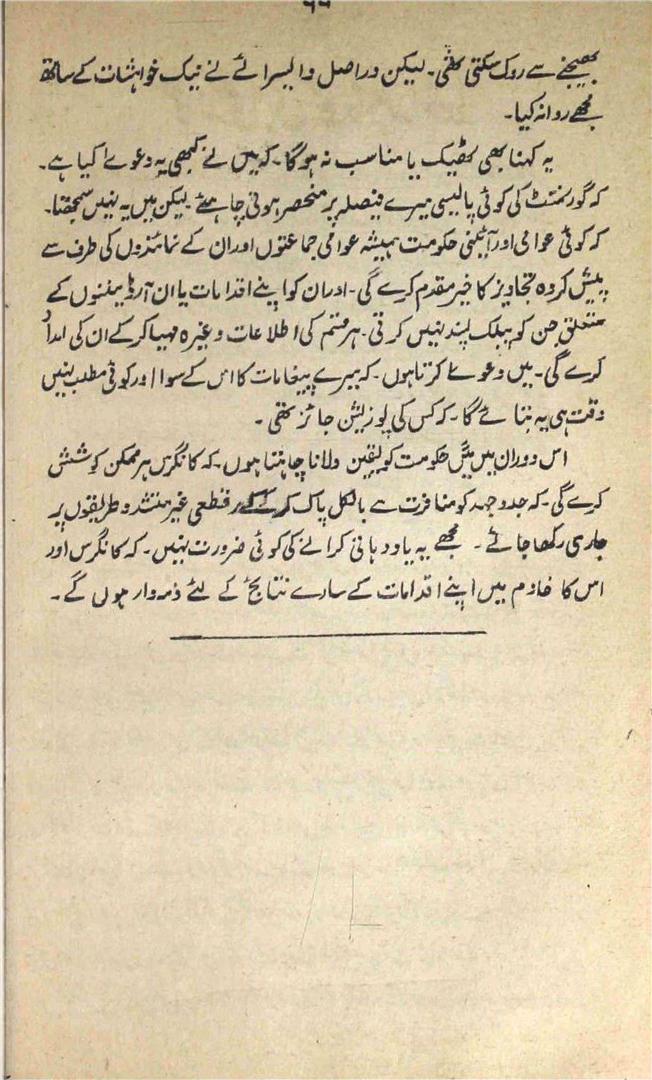 بھیجنے سے روک سکتی تھی۔ لیکن دراصل وائیسرائے نے نیک خواہشات کے ساتھ
مجھے روانہ کیا۔
یہ کہنا بھی ٹھیک یا مناسب نہ ہوگا۔ کہ میں نے کبھی یہ دعوےٰ کیا ہے۔
کہ گورنمنٹ کی کوئی پالیسی میرے فیصلہ پر منحصر ہونی چاہئے۔ لیکن میں یہ نہیں سمجھتا۔
کہ کوئی عوامی اور آئینی حکومت ہمیشہ عوامی جماعتوں اور ان کے نمائندوں کی طرف سے
پیش کردہ تجاویز کا خیر مقدم کرے گی۔ اور ان کو اپنے اقدامات یا ان آرڈیننسوں کے
متعلق جن کو پبلک پسند نہیں کرتی۔ ہر قسم کی اطلاعات وغیرہ مہیا کر کے ان کی امداد
کرے گی۔ میں دعوےٰ کرتا ہوں۔ کہ میرے پیغامات کا اس کے سوا اور کوئی مطلب نہیں
وقت ہی یہ بتائے گا۔ کہ کس کی پوزیشن جائز تھی۔
اس دوران میں میَں حکومت کو یقین دلانا چاہتا ہوں۔ کہ کانگرس ہر ممکن کوشش
کرے گی۔ کہ جدوجہد کو منافرت سے بالکل پاک کر کے قطعی غیر متشدد طریقوں پر
جاری رکھا جائے۔ مجھے یہ یاد دہانی کرانے کی کوئی ضرورت نہیں۔ کہ کانگرس اور
اس کا خادم میں اپنے اقدامات کے سارے نتائج کے لئے ذمہ وار ہوں گے۔